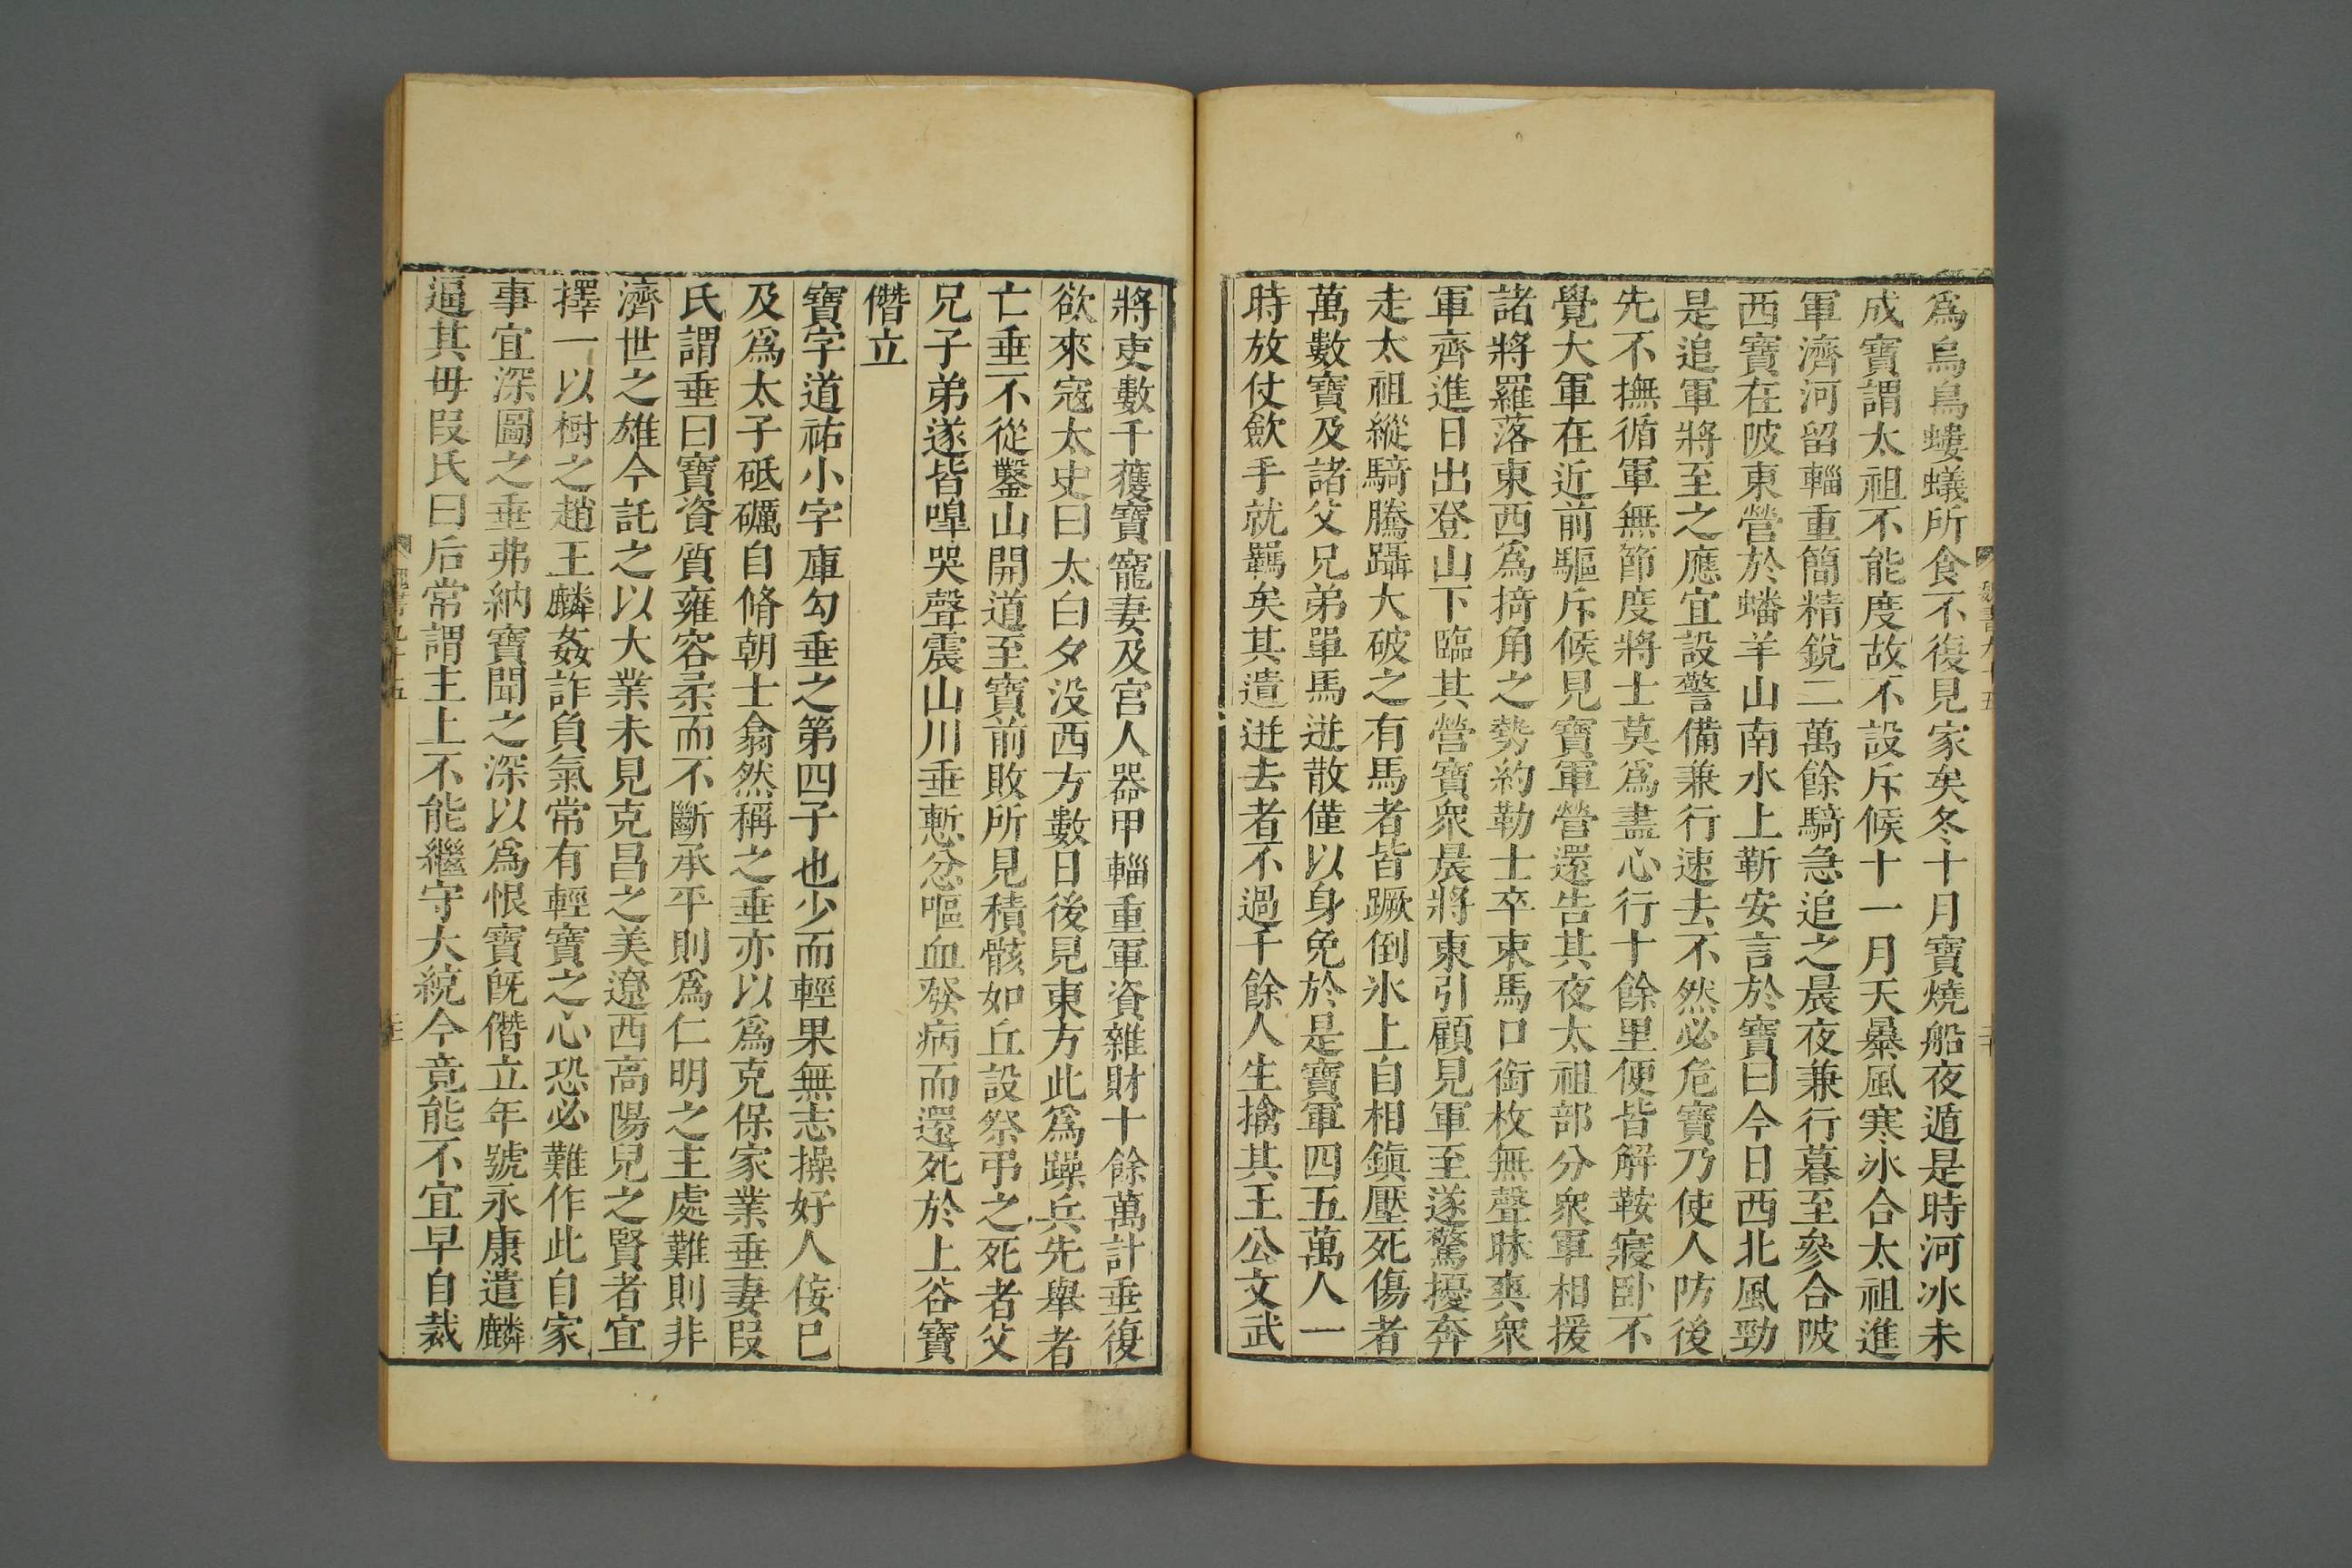 爲烏鳥螻蟻所食不復見家矣冬十月寶燒船夜遁是時河冰未
成寶謂太祖不能度故不設斥候十一月天暴風寒冰合太祖進
軍濟河留輜重簡精銳二萬餘騎急追之晨夜兼行暮至參合陂
西寶在陂東營於蟠羊山南水上靳安言於寶曰今日西北風勁
是追軍將至之應宜設警備兼行速去不然必危寶乃使人防後
先不撫循軍無節度將士莫爲盡心行十餘里便皆解鞍寢卧不
覺大軍在近前驅斥候見寶軍營還告其夜太祖部分衆軍相援
諸將羅落東西爲掎角之勢約勒士卒束馬口銜枚無聲昧爽衆
軍齊進日出登山下臨其營寶衆晨將東引顧見軍至遂驚擾奔
走太祖縱騎騰躡大破之有馬者皆蹶倒氷上自相鎭壓死傷者
萬數寶及諸父兄弟單馬迸散僅以身免於是寶軍四五萬人一
時放仗斂手就羈矣其遺迸去者不過千餘人生擒其王公文武
將吏數千獲寶寵妻及宮人器甲輜重軍資雜財十餘萬計垂復
欲來寇太史曰太白夕没西方數日後見東方此爲躁兵先舉者
亡垂不從鑿山開道至寶前敗所見積骸如丘設祭弔之死者父
兄子弟遂皆嘷哭聲震山川垂慙忿嘔血發病而還死於上谷寶
僭立
寶字道祐小字庫勾垂之第四子也少而輕果無志操好人佞已
及爲太子砥礪自脩朝士翕然稱之垂亦以爲克保家業垂妻段
氏謂垂曰寶資質雍容柔而不斷承平則爲仁明之主處難則非
濟世之雄今託之以大業未見克昌之美遼西高陽兒之賢者宜
擇一以樹之趙王麟姦詐負氣常有輕寶之心恐必難作此自家
事宜深圖之垂弗納寶聞之深以爲恨寶旣僭立年號永康遣麟
逼其母段氏曰后常謂主上不能繼守大統今竟能不宜早自裁